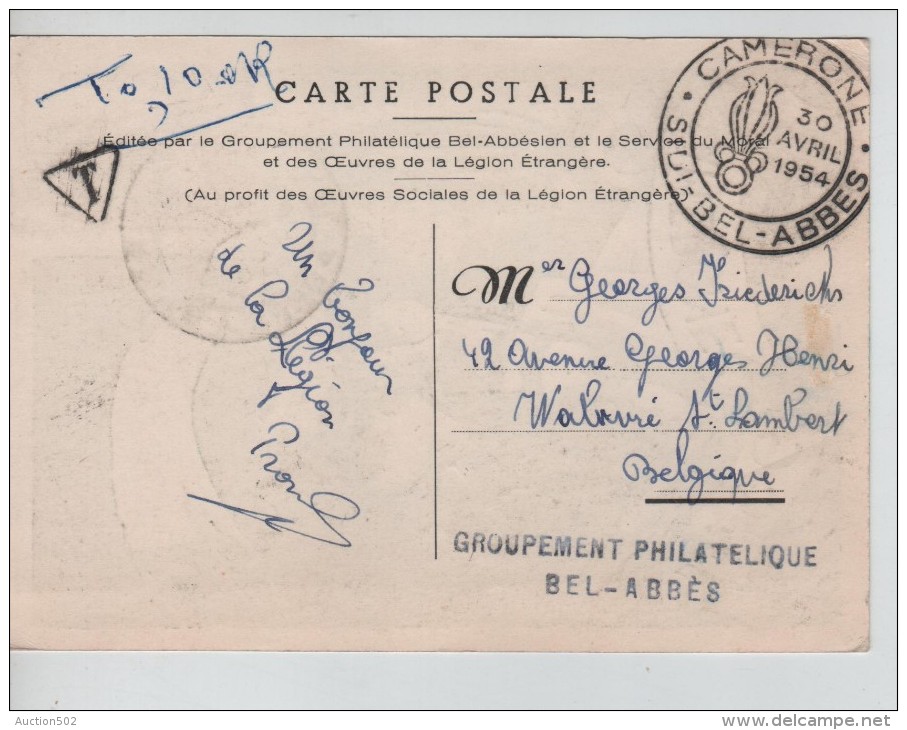 CARTE POSTALE
Éditée par le Groupement Philatélique Bel-Abbésien et le Service du Moral
et des Œuvres de la Légion Étrangère.
(Au profit des Œuvres Sociales de la Légion Étrangère)
T
CAMERONE
30
AVRIL
1954
SIDI-BEL-ABBES
Un bonjour
de la Légion
Mer Georges Friederichs
42 Avenue Georges Henri
St Lambert
Belgique
GROUPEMENT PHILATELIQUE
BEL-ABBÈS
Auction502
delcampe.net